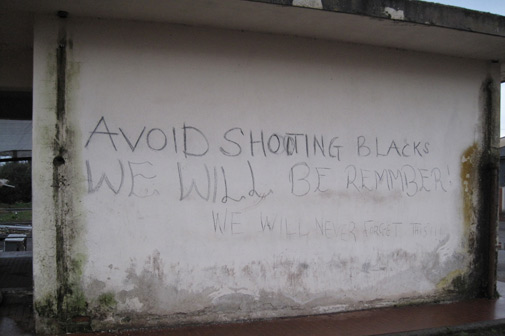 AVOID SHOOTING BLACKS
WE WILL BE REMMBER!
WE WILL NEVER FORGET